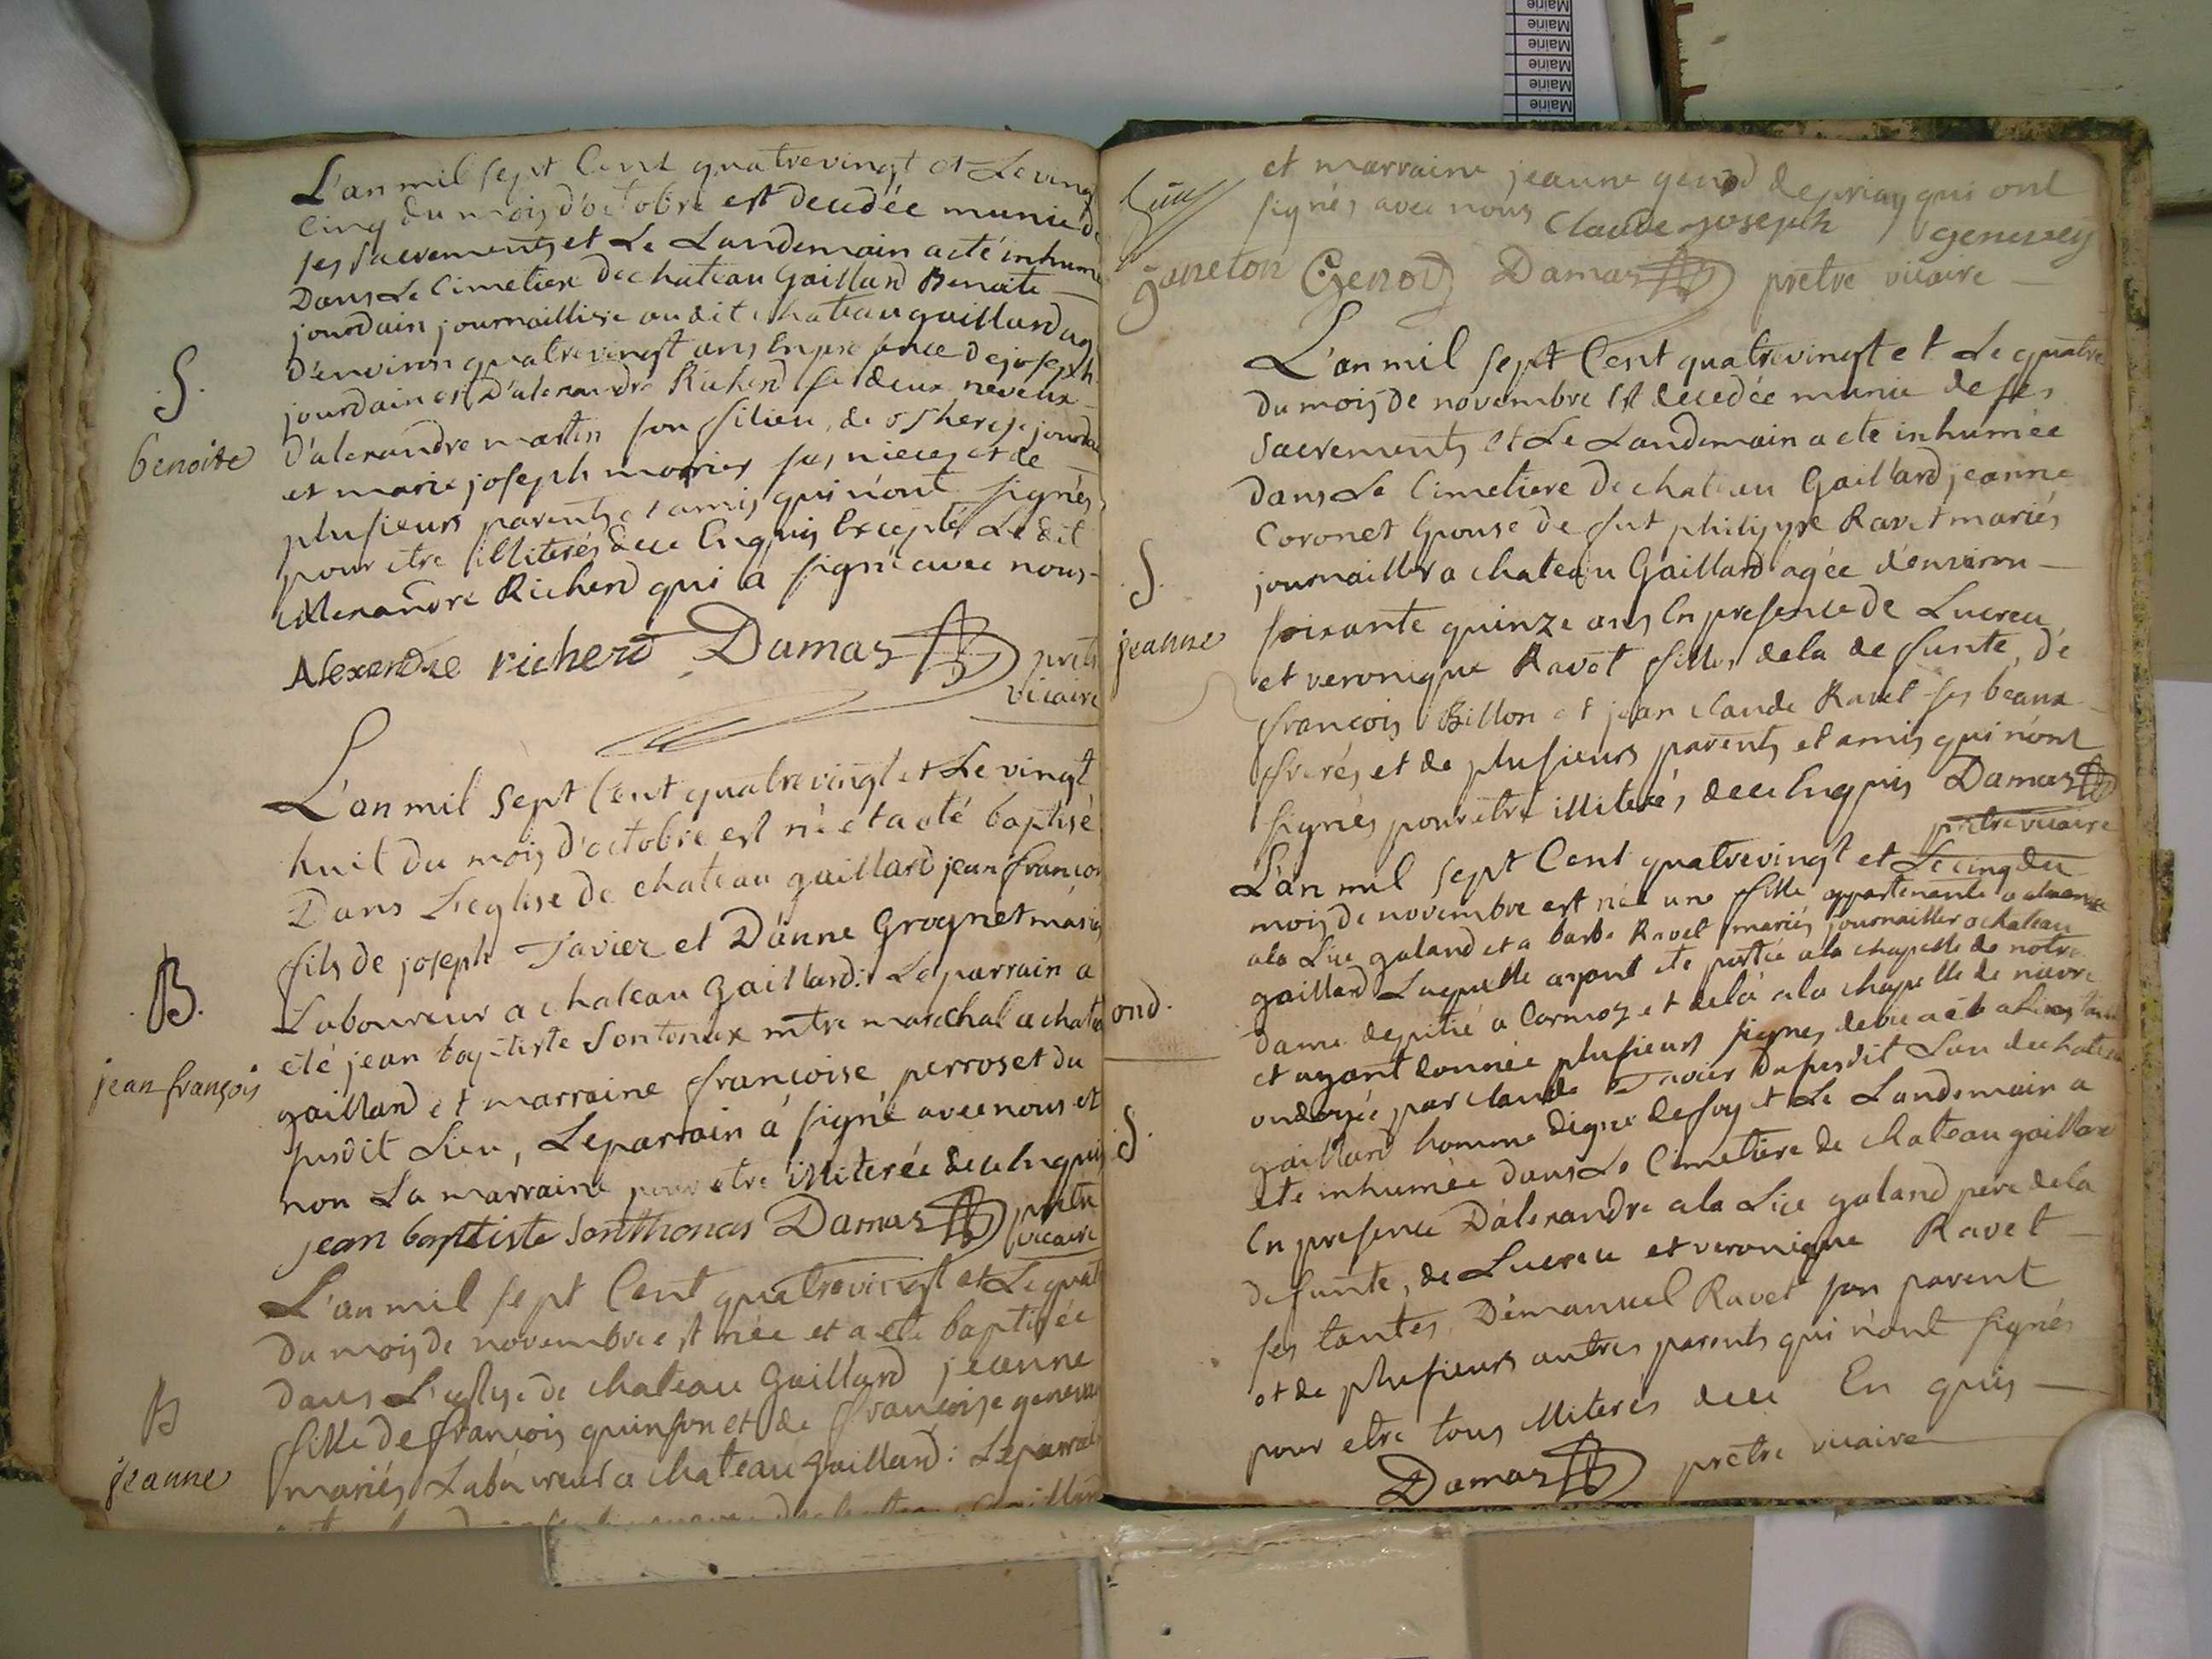 Mairie
Mairie
Mairie
Mairie
Mairie
Mairie
L'an mil sept Cent quatrevingt et Le vingt
cinq du mois d'octobre est decedée munie de
ses sacrements et Le Landemain a eté inhumé
Dans Le Cimetiere de chateau Gaillard Benoite
jourdain journailliere au dit chateau gaillard agé
D'environ quatrevingt ans En presence de joseph
jourdain et D'alexandre Richerd se deux neveux
D'alexandre martin son filieu, de Therese jourdain
et marie joseph morier ses nieces et de
plusieurs parents et amis qui n'ont signés
pour etre illiterés de ce Enquis Excepté Le dit
allexandre Richerd qui a signé avec nous
Alexendre richerd Damas pretre
vicaire
S.
benoite
L'an mil sept Cent quatrevingt et Le vingt
huit du mois d'octobre est né et a eté baptisé
Dans L'eglise de chateau gaillard jean françois
fils de joseph Tavier et D'anne Grognet mariés
Laboureur a chateau Gaillard: Le parrain a
eté jean baptiste Sontonax mtre marechal a chateau
gaillard et marraine françoise perroset du
susdit Lieu, Le parrain à signé avec nous et
non La marraine pour etre illiterée de ce Enquis
jean baptiste Sonthonas Damas pretre
vicaire
B.
jean françois
L'an mil sept Cent quatrevingt et Le quat
du mois de novembre est née et a eté baptisée
dans L'eglise de chateau Gaillard jeanne
fille de françois quinson et de françoise genevey
mariés Laboureur a chateau Gaillard: Le parrain
B
jeanne
et marraine jeanne genod de priay qui ont
signés avec nous Claude joseph genevey
janeton Genod Damas pretre vicaire
L'an mil sept Cent quatrevingt et Le quatre
du mois de novembre Est decedée munie de ses
sacrements et Le Landemain a eté inhumée
dans Le Cimetiere de chateau Gaillard jeanne
Coronet Epouse de fut philippe Ravet mariés
journaillier a chateau Gaillard agée d'environ
soixante quinze ans En presence de Lucrece
et veronique Ravet filles de la defunte, de
françois Billon et jean claude Ravet ses beaux
freres et de plusieurs parents et amis qui n'ont
signés pour etre illiterés de ce Enquis Damas
pretre vicaire
S.
jeanne
L'an mil sept Cent quatrevingt et Le cinq du
mois de novembre est née une fille appartenante a
ala Lice galand et a barbe Ravet mariés journaillier a chateau
gaillard Laquelle ayant eté portée a la chapelle de notre
dame de pitié a Cormoz et de là a la chapelle de
et ayant donnée plusieurs signes de vie a eté
ondoyée par claude Tavier du susdit Lieu de chateau
gaillard homme digne de foy et Le Landemain a
eté inhumée dans Le Cimetiere de chateau gaillard
En presence D'alexandre ala Lice galand pere de la
defunte, de Lucrece et veronique Ravet
ses tantes, D'emanuel Ravet son parent
et de plusieurs autres parents qui n'ont signés
pour etre tous illiterés de ce En quis
Damas pretre vicaire
ond.
S.